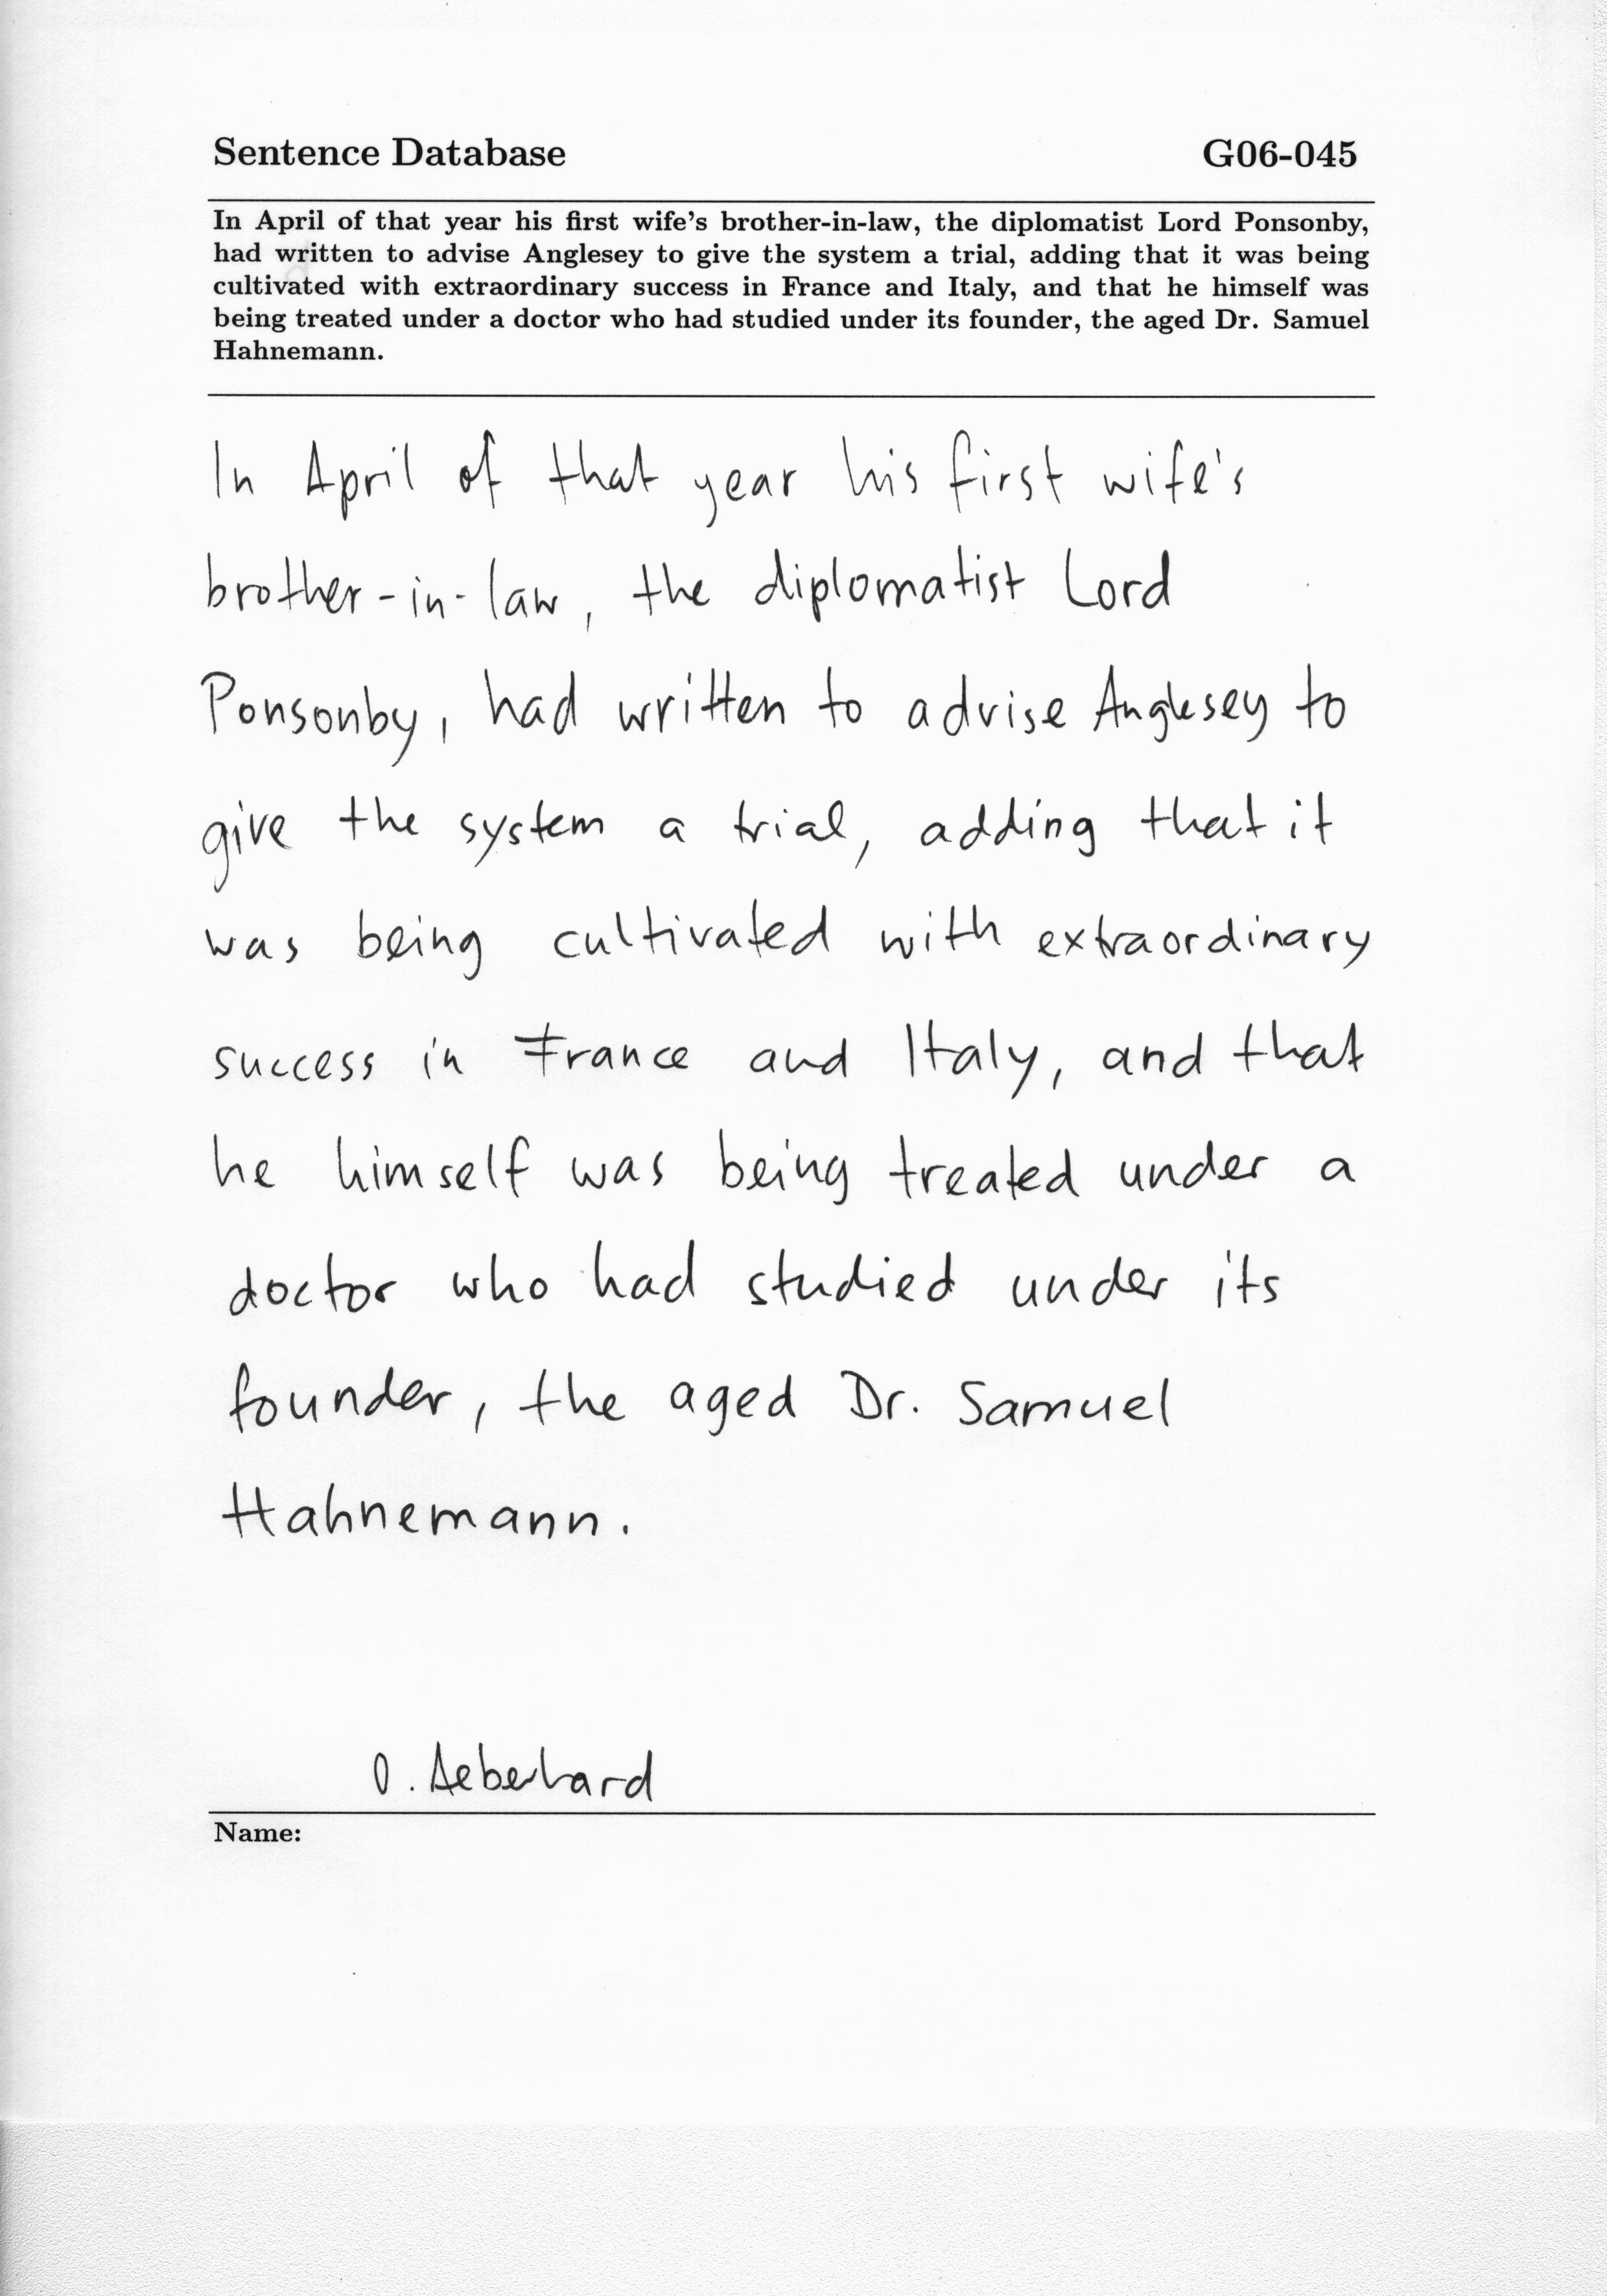 Sentence Database G06-045
In April of that year his first wife's brother-in-law, the diplomatist Lord Ponsonby,
had written to advise Anglesey to give the system a trial, adding that it was being
cultivated with extraordinary success in France and Italy, and that he himself was
being treated under a doctor who had studied under its founder, the aged Dr. Samuel
Hahnemann.
In April of that year his first wife's
brother-in-law, the diplomatist Lord
Ponsonby, had written to advise Anglesey to
give the system a trial, adding that it
was being cultivated with extraordinary
success in France and Italy, and that
he himself was being treated under a
doctor who had studied under its
founder, the aged Dr. Samuel
Hahnemann.
O. Aeberhard
Name: